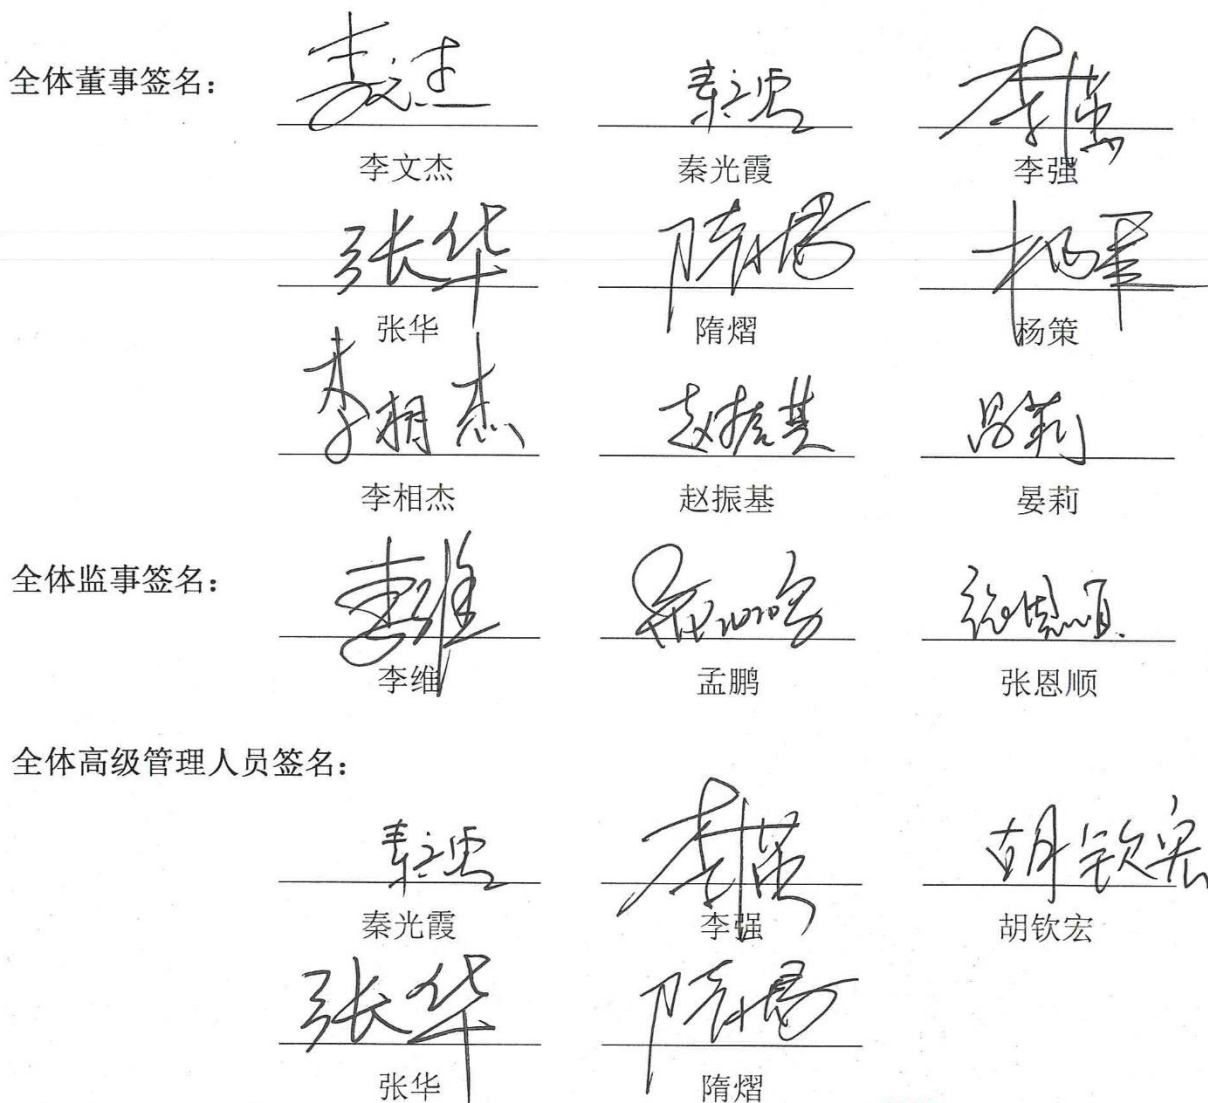 全体董事签名：
李文杰 秦光霞 李强
张华 隋熠 杨策
李相杰 赵振基 晏莉
全体监事签名：
李维 孟鹏 张恩顺
全体高级管理人员签名：
秦光霞 李强 胡钦宏
张华 隋熠